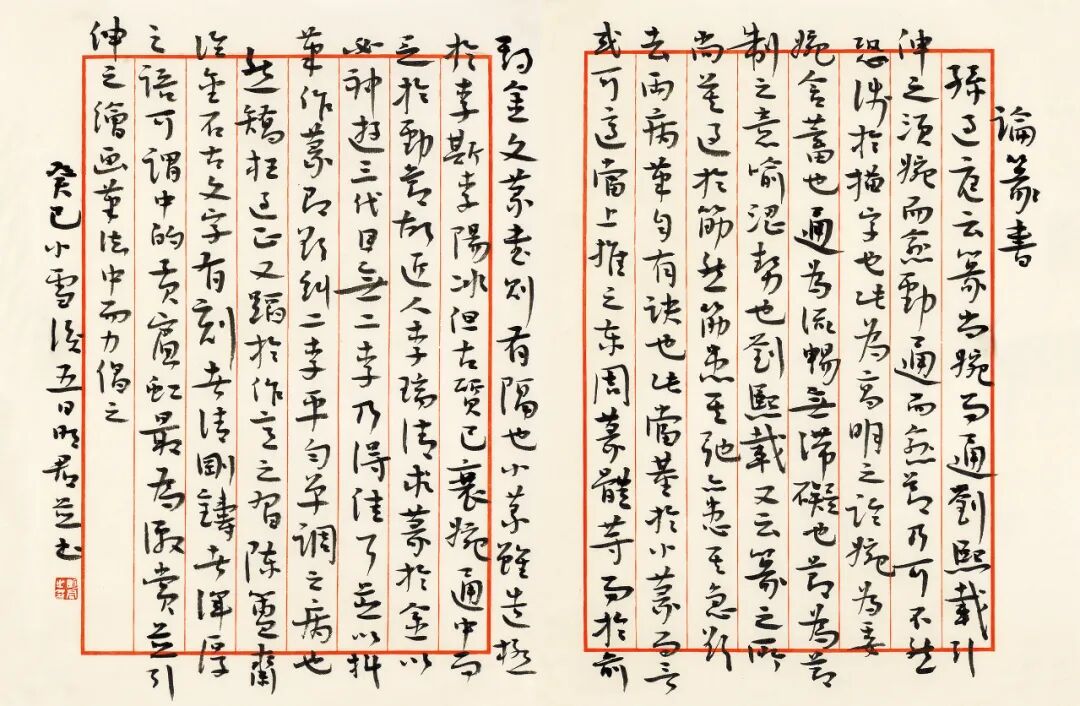 論篆書
孫過庭云篆尚婉而通劉熙載引
伸之須婉而愈勁通而愈節乃可不然
恐涉於描字也此為高明之論婉為委
婉含蓄也通為流暢無滯礙也節為節
制之意喻澀勢也劉熙載又云篆之所
尚莫過於筋然筋患其弛亦患其急欲
去兩病筆自有訣也此當基於小篆而言
或可適當上推之東周篆體等而於前
期金文篆書則有隔也小篆雖造極
於李斯李陽冰但古質已衰婉通中而
乏於勁節故近人李瑞清求篆於金以
必神遊三代目無二李乃得佳並以抖
筆作篆即欲糾二李平勻單調之病也
然矯枉過正又蹈於作意之習陳簠齋
論金石古文字有刻者清剛鑄者渾厚
之語可謂中的黃賓虹最為激賞並引
伸之繪画筆法中而力倡之
癸巳小雪後五日明君並書